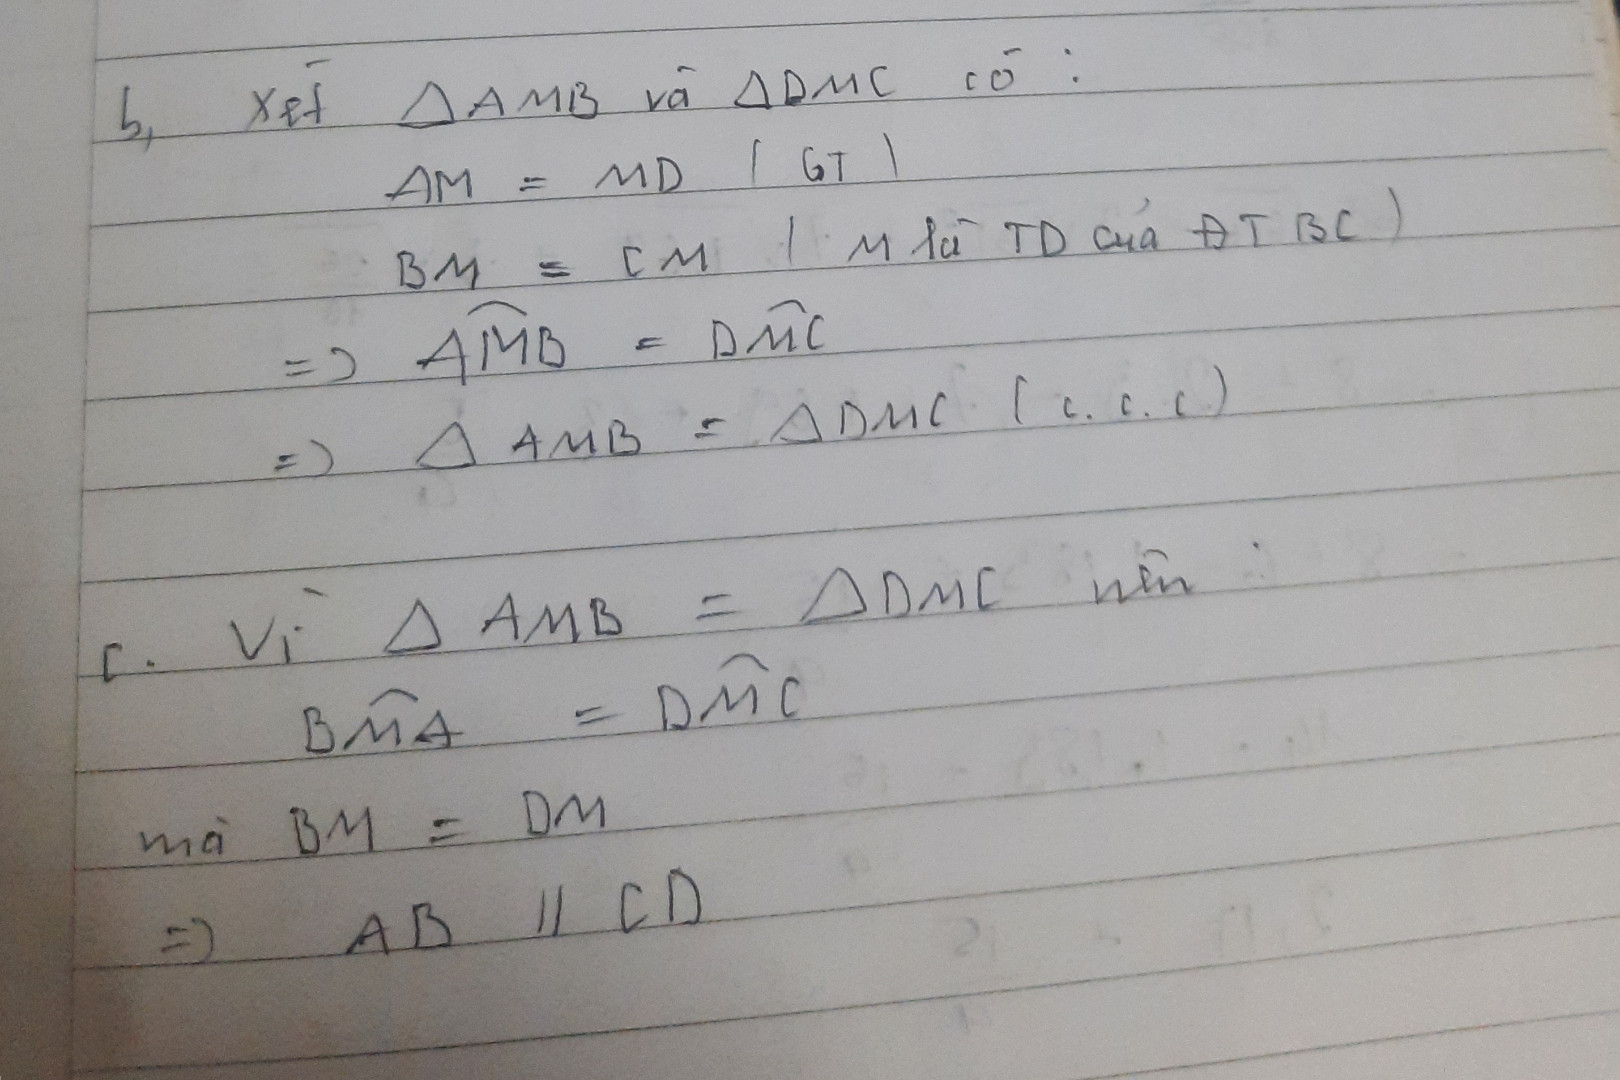 b, Xét △AMB và △DMC có :
AM = MD ( GT )
BM = CM ( M là TD của ĐT BC )
=> \widehat{AMB} = \widehat{DMC}
=> △ AMB = △DMC ( c. c. c )
c. Vì △ AMB = △DMC nên :
\widehat{BMA} = \widehat{DMC}
mà BM = DM
=> AB // CD